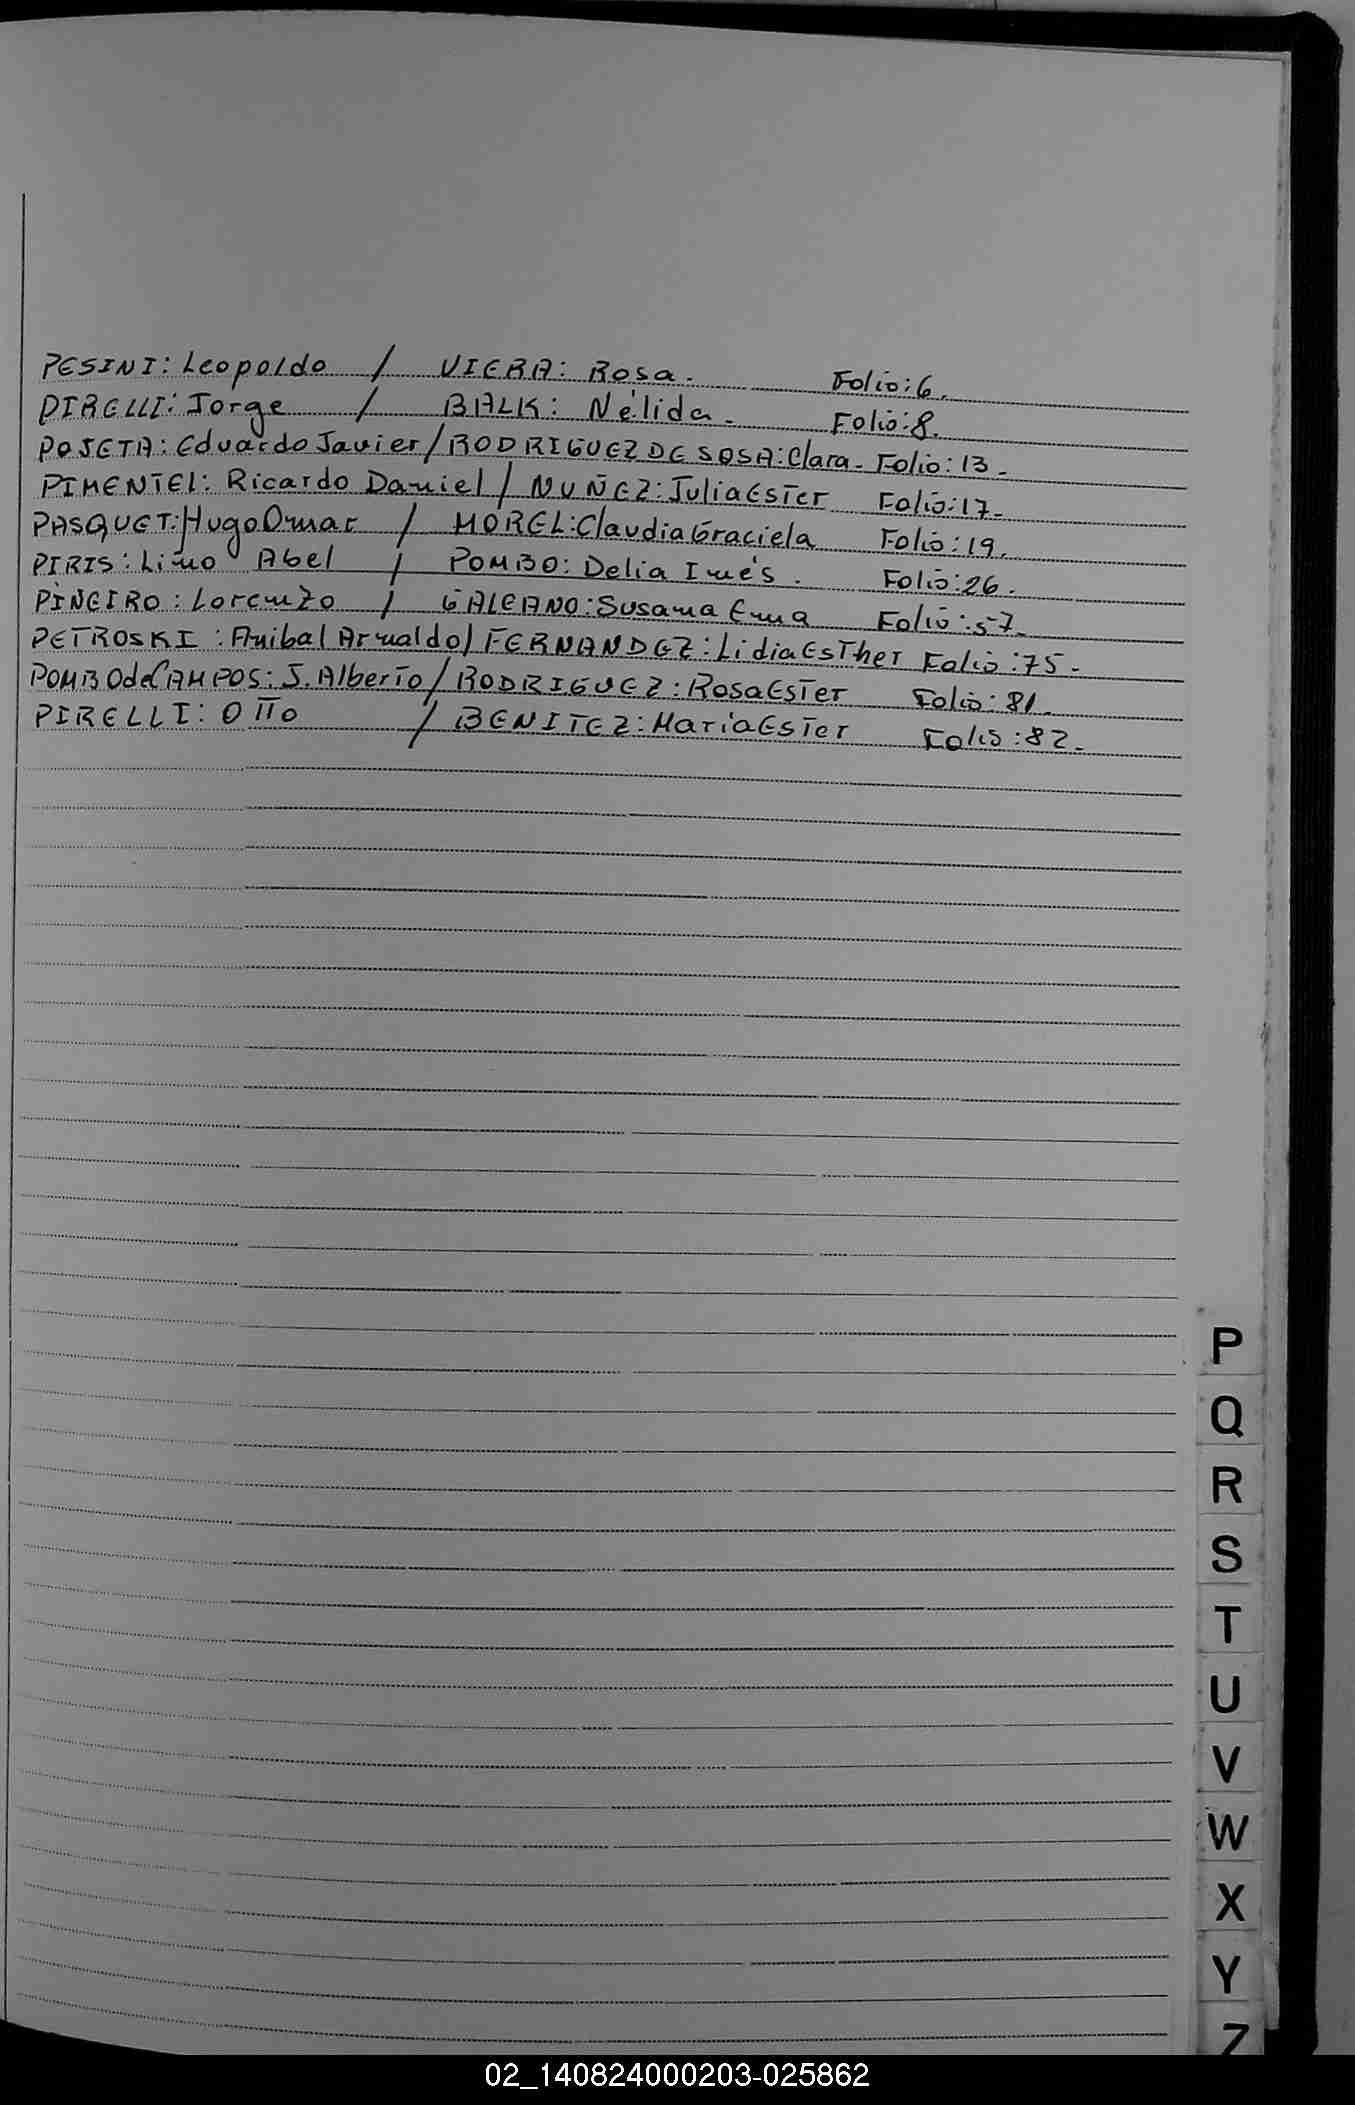 PESINI: Leopoldo / VIERA: Rosa. Folio: 6.
PIRELLI: Jorge / BALK: Nélida. Folio: 8.
POSETA: Eduardo Javier / RODRIGUEZ DE SOSA: Clara. Folio: 13.
PIMENTEl: Ricardo Daniel / NUÑEZ: Julia Ester Folio: 17.
PASQUET: Hugo Omar / MOREL: Claudia Graciela Folio: 19.
PIRIS: Lino Abel / POMBO: Delia Inés. Folio: 26.
PIÑEIRO: Lorenzo / GALEANO: Susana Ema Folio: 57.
PETROSKI: Anibal Arnaldo / FERNANDEZ: Lidia Esther Folio: 75.
POMBO de CAMPOS: J. Alberto / RODRIGUEZ: Rosa Ester Folio: 81.
PIRELLI: Otto / BENITEZ: María Ester Folio: 82.
P
Q
R
S
T
U
V
W
X
Y
Z
02_140824000203-025862